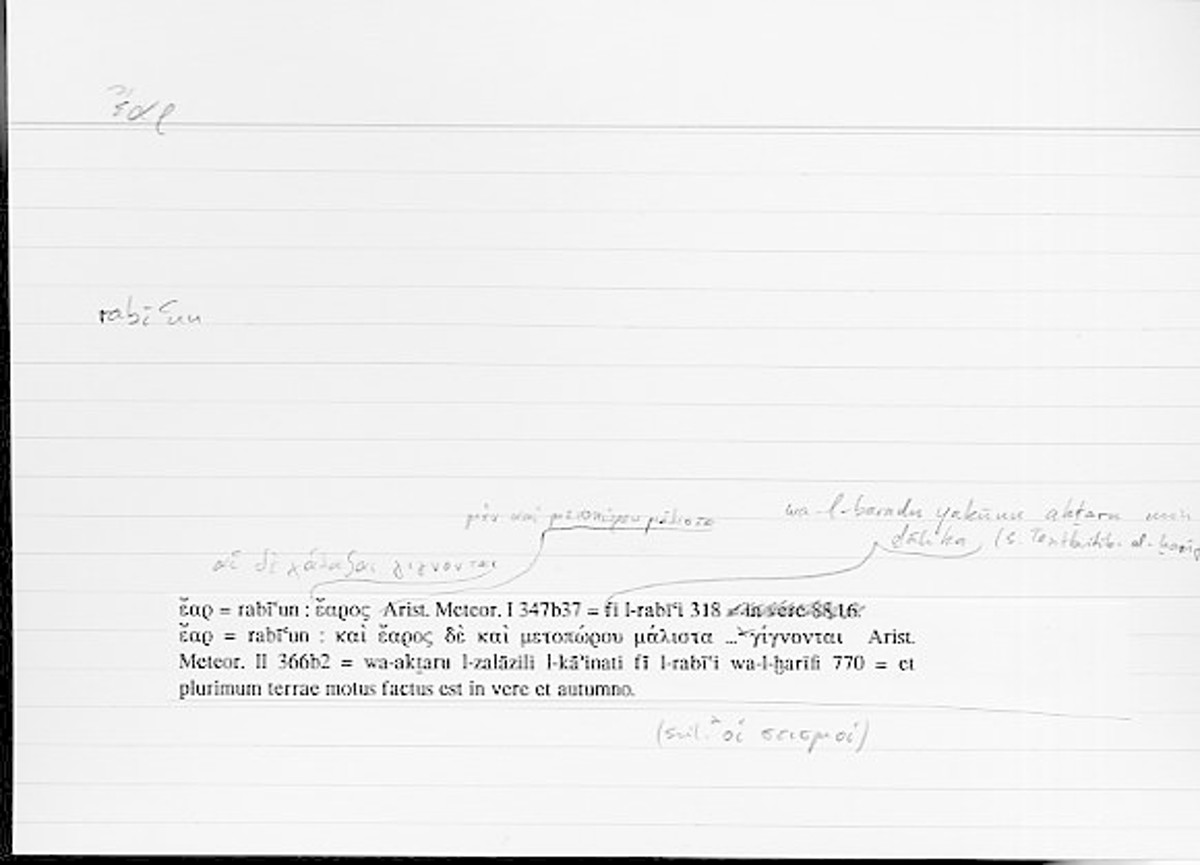 ἔαρ
rabīʿun
μὲν καὶ μετοπώρου μάλιστα
wa-l-baradu yakūnu akṯaru min
ḏālika (s.
αἱ δὲ χάλαζαι γίγνονται
ἔαρ = rabīʿun : ἔαρος Arist. Meteor. I 347b37 = fī l-rabīʿi 318 = in vere 88,16.
ἔαρ = rabīʿun : καὶ ἔαρος δὲ καὶ μετοπώρου μάλιστα ... γίγνονται Arist.
Meteor. II 366b2 = wa-akṯaru l-zalāzili l-kāʾinati fī l-rabīʿi wa-l-ḫarīfi 770 = et
plurimum terrae motus factus est in vere et autumno.
(scil. οἱ σεισμοί)